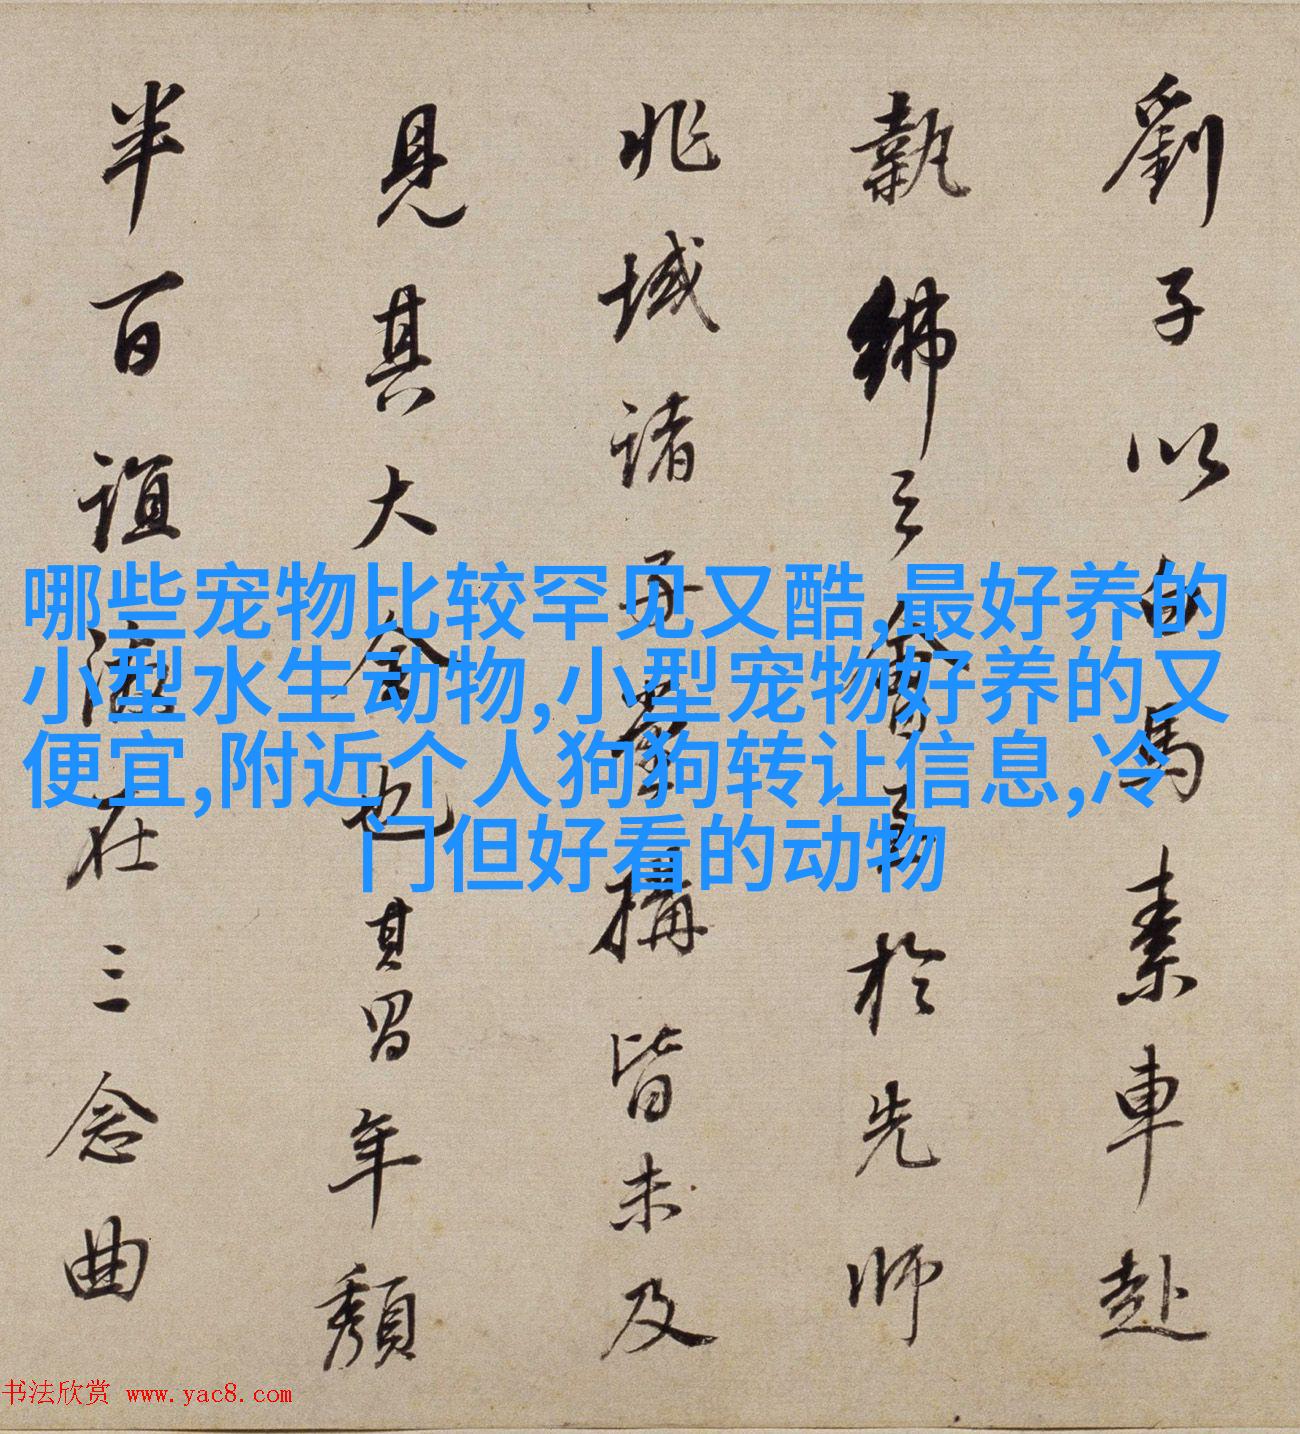 劉子以白馬素車赴
執紼之會於先師
兆域諸搆皆未及
見其大也其年頹
半百誼在三念曲
哪些宠物比较罕见又酷,最好养的
小型水生动物,小型宠物好养的又
便宜,附近个人狗狗转让信息,冷
门但好看的动物
书法欣赏 www.yac8.com